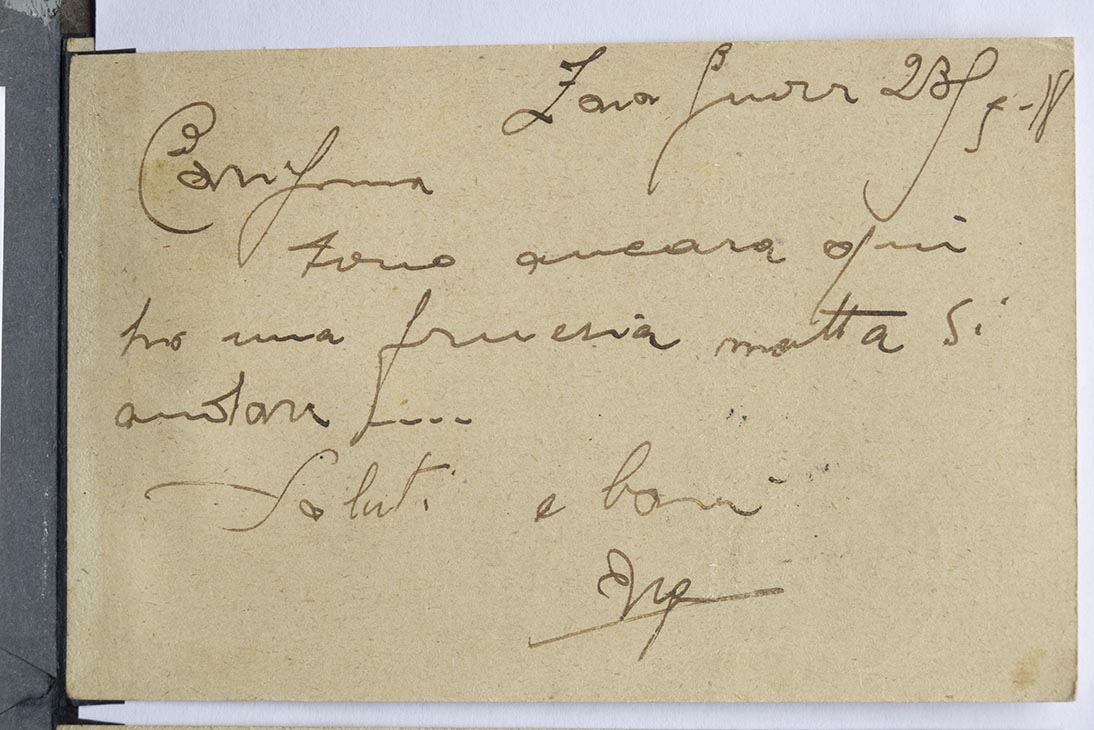 Zona Guerra 23/5-18
Carissima
sono ancora qui
ho una frenesia matta di
andare ....
Saluti e baci